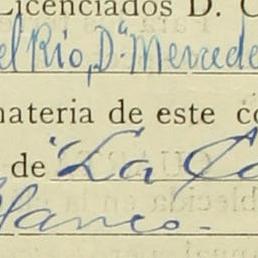 Licenciados D. C
el Rio, Dª Mercede
materia de este co
de "La Ca
Blanco.